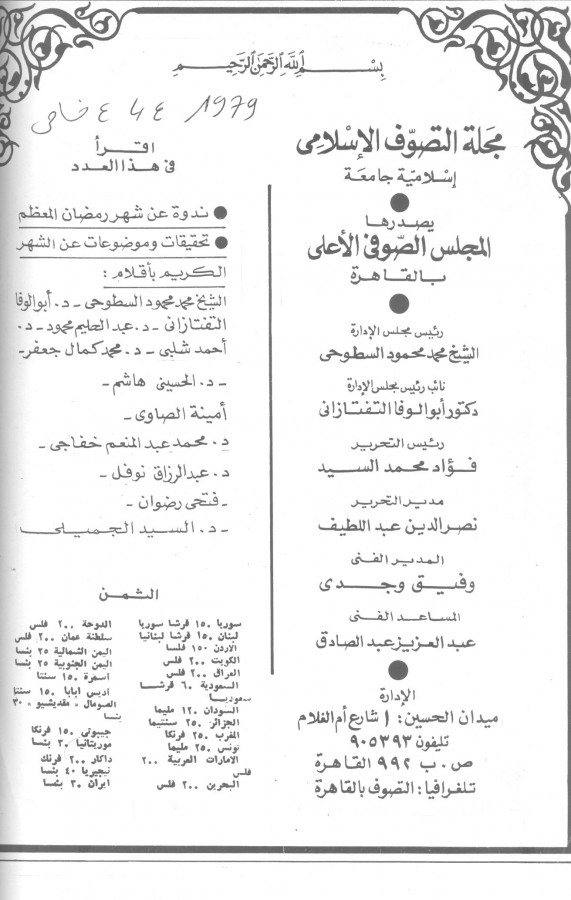 بسم الله الرحمن الرحيم
1979
مجلة التصوف الإسلامى
إسلامية جامعة
يصدرها
المجلس الصوفى الأعلى
بالقاهرة
رئيس مجلس الإدارة
الشيخ محمد محمود السطوحى
نائب رئيس مجلس الإدارة
دكتور أبو الوفا التفتازانى
رئيس التحرير
فؤاد محمد السيد
مدير التحرير
نصر الدين عبد اللطيف
المدير الفنى
وفيق وجدى
المساعد الفنى
عبد العزيز عبد الصادق
الإدارة
ميدان الحسين: ١ شارع أم الغلام
تليفون ٩٠٥٣٩٣
ص . ب ٩٩٢ القاهرة
تلغرافيا: التصوف بالقاهرة
اقرأ
فى هذا العدد
● ندوة عن شهر رمضان المعظم
● تحقيقات وموضوعات عن الشهر
الكريم بأقلام :
الشيخ محمد محمود السطوحى - د. أبو الوفا
التفتازانى - د. عبد الحليم محمود - د.
أحمد شلبى - د. محمد كمال جعفر -
- د. الحسينى هاشم -
أمينة الصاوى -
د. محمد عبد المنعم خفاجى -
د. عبد الرزاق نوفل -
- فتحى رضوان -
- د. السيد الجميلى
الثمن
سوريا ١٥٠ قرشا سوريا
لبنان ١٥٠ قرشا لبنانيا
الاردن ١٥٠ فلسا
الكويت ٢٠٠ فلس
العراق ٢٠٠ فلس
السعودية ٦٠ قرشا
سعوديا
السودان ١٢٠ مليما
الجزائر ٢٥٠ سنتيما
المغرب ٢٥٠ فرنكا
تونس ٢٥٠ مليما
الامارات العربية ٢٠٠
فلس
البحرين ٢٠٠ فلس
الدوحة ٢٠٠ فلس
سلطنة عمان ٢٠٠ فلس
اليمن الشمالية ٢٥ بنسا
اليمن الجنوبية ٢٥ بنسا
اسمرة ١٥٠ سنتا
اديس ابابا ١٥٠ سنتا
الصومال « مقديشيو » ٣٠
بنسا
جيبوتى ١٥٠ فرنكا
موريتانيا ٣٠ بنسا
داكار ٢٠٠ فرنك
نيجيريا ٤٠ بنسا
ايران ٣٠ بنسا